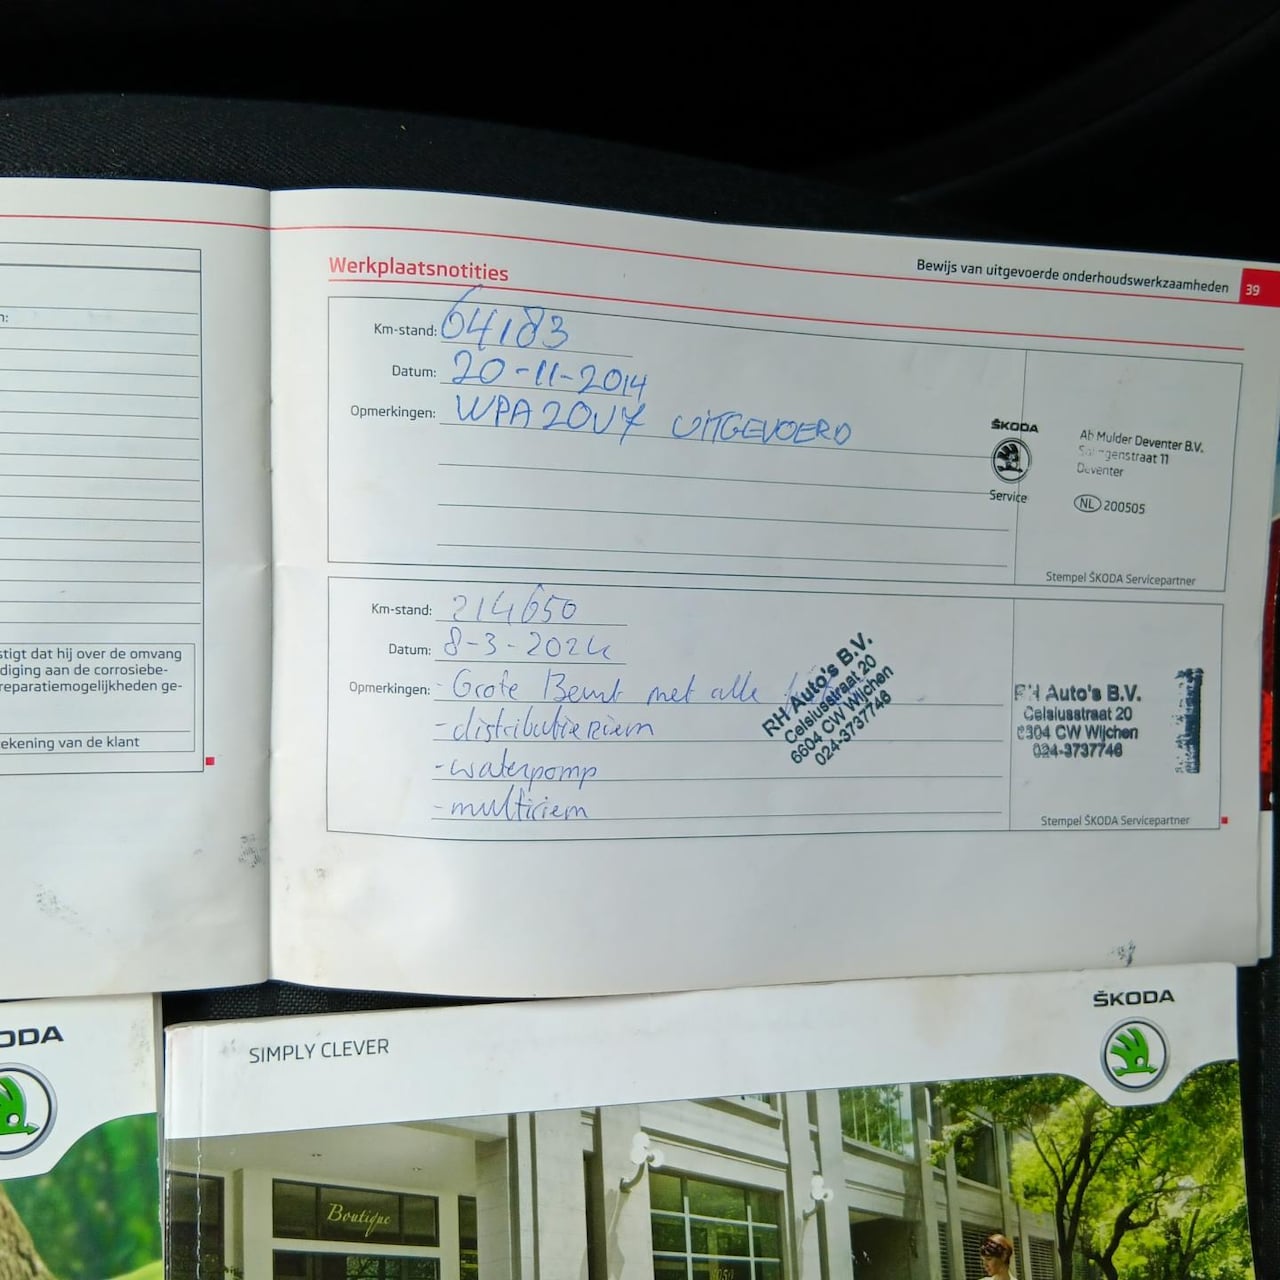 Werkplaatsnotities
Bewijs van uitgevoerde onderhoudswerkzaamheden
39
Km-stand: 64183
Datum: 20-11-2014
Opmerkingen: WPA 20U7 UITGEVOERD
ŠKODA
Service
Ab Mulder Deventer B.V.
11
Deventer
NL 200505
Stempel ŠKODA Servicepartner
Km-stand: 214650
Datum: 8-3-2024
Opmerkingen: - Grote Beurt met alle
- distributieriem
- waterpomp
- multiriem
RH Auto's B.V.
Celsiusstraat 20
6604 CW Wijchen
024-3737746
RH Auto's B.V.
Celsiusstraat 20
6304 CW Wijchen
024-3737746
Stempel ŠKODA Servicepartner
n:
stigt dat hij over de omvang
diging aan de corrosiebe-
reparatiemogelijkheden ge-
ekening van de klant
ODA
SIMPLY CLEVER
ŠKODA
Boutique